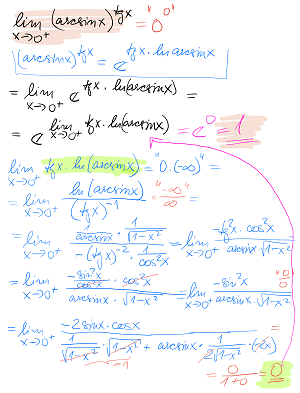 lim x→0⁺ (arcsinx)^tgx = "0⁰"
(arcsinx)^tgx = e^tgx·ln(arcsinx)
= lim x→0⁺ e^tgx·ln(arcsinx) =
= e^lim x→0⁺ tgx·ln(arcsinx) = e⁰ = 1
lim x→0⁺ tgx·ln(arcsinx) = "0·(-∞)" =
= lim x→0⁺ ln(arcsinx)/(tgx)⁻¹ "-∞"/∞ =
= lim x→0⁺ (1/arcsinx · 1/√(1-x²))/(-(tgx)⁻² · 1/cos²x) = lim x→0⁺ (-tg²x·cos²x)/(arcsinx·√(1-x²))
= lim x→0⁺ (-sin²x/cos²x · cos²x)/(arcsinx·√(1-x²)) = lim x→0⁺ (-sin²x)/(arcsinx·√(1-x²)) "0/0"
= lim x→0⁺ (-2sinx·cosx)/(1/√(1-x²) · √(1-x²) + arcsinx · 1/(2√(1-x²)) · (-2x)) =
=1
= 0/(1+0) = 0